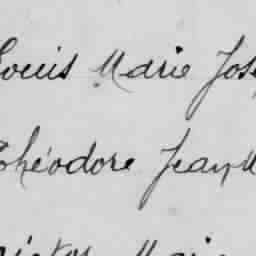 Louis Marie Jos
Théodore Jean M